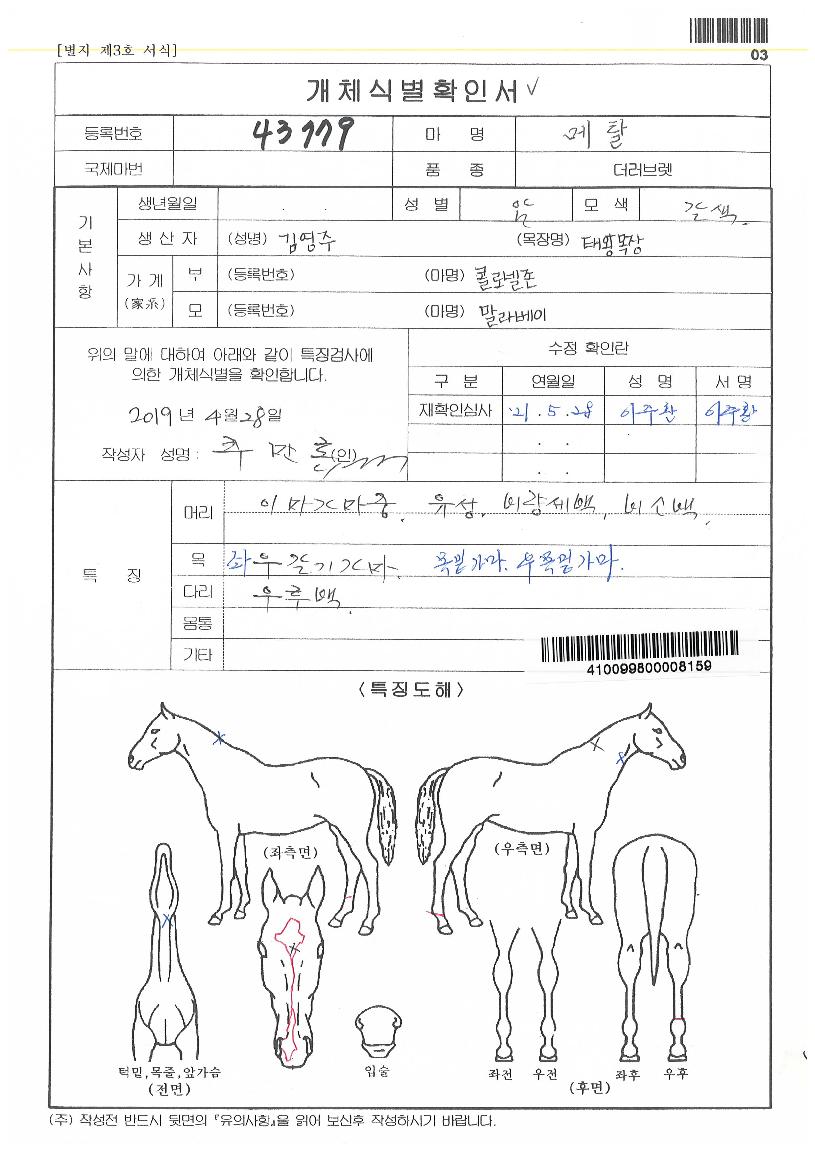 [별지 제3호 서식]
03
개체식별확인서 √
등록번호 43779 마 명 메탈
국제마번 품 종 더러브렛
기본사항
생년월일 . . 성 별 암 모 색 갈색.
생 산 자 (성명) 김영주 (목장명) 태왕목장
가 계 (家系) 부 (등록번호) (마명) 콜로넬존
모 (등록번호) (마명) 말라베이
위의 말에 대하여 아래와 같이 특징검사에
의한 개체식별을 확인합니다.
2019년 4월28일
작성자 성명 : 주만훈(인)
수정 확인란
구 분 연월일 성 명 서 명
재확인심사 '21. 5. 28 이주환 이주환
. .
. .
특 징
머리 이마가마중. 유성. 비량세백, 비소백.
목 좌우갈기가마. 목밑가마. 우목밑가마.
다리 우후백.
몸통
기타
410099800008159
〈특징도해〉
(좌측면) (우측면)
턱밑,목줄,앞가슴
(전면)
입술
좌전 우전 좌후 우후
(후면)
(주) 작성전 반드시 뒷면의 『유의사항』을 읽어 보신후 작성하시기 바랍니다.